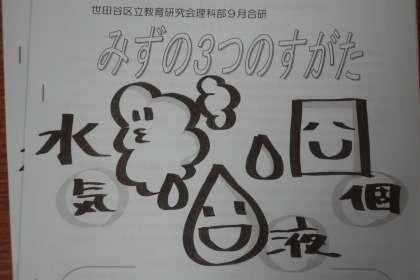 世田谷区立教育研究会理科部９月合研
みずの3つのすがた
水
気
液
個